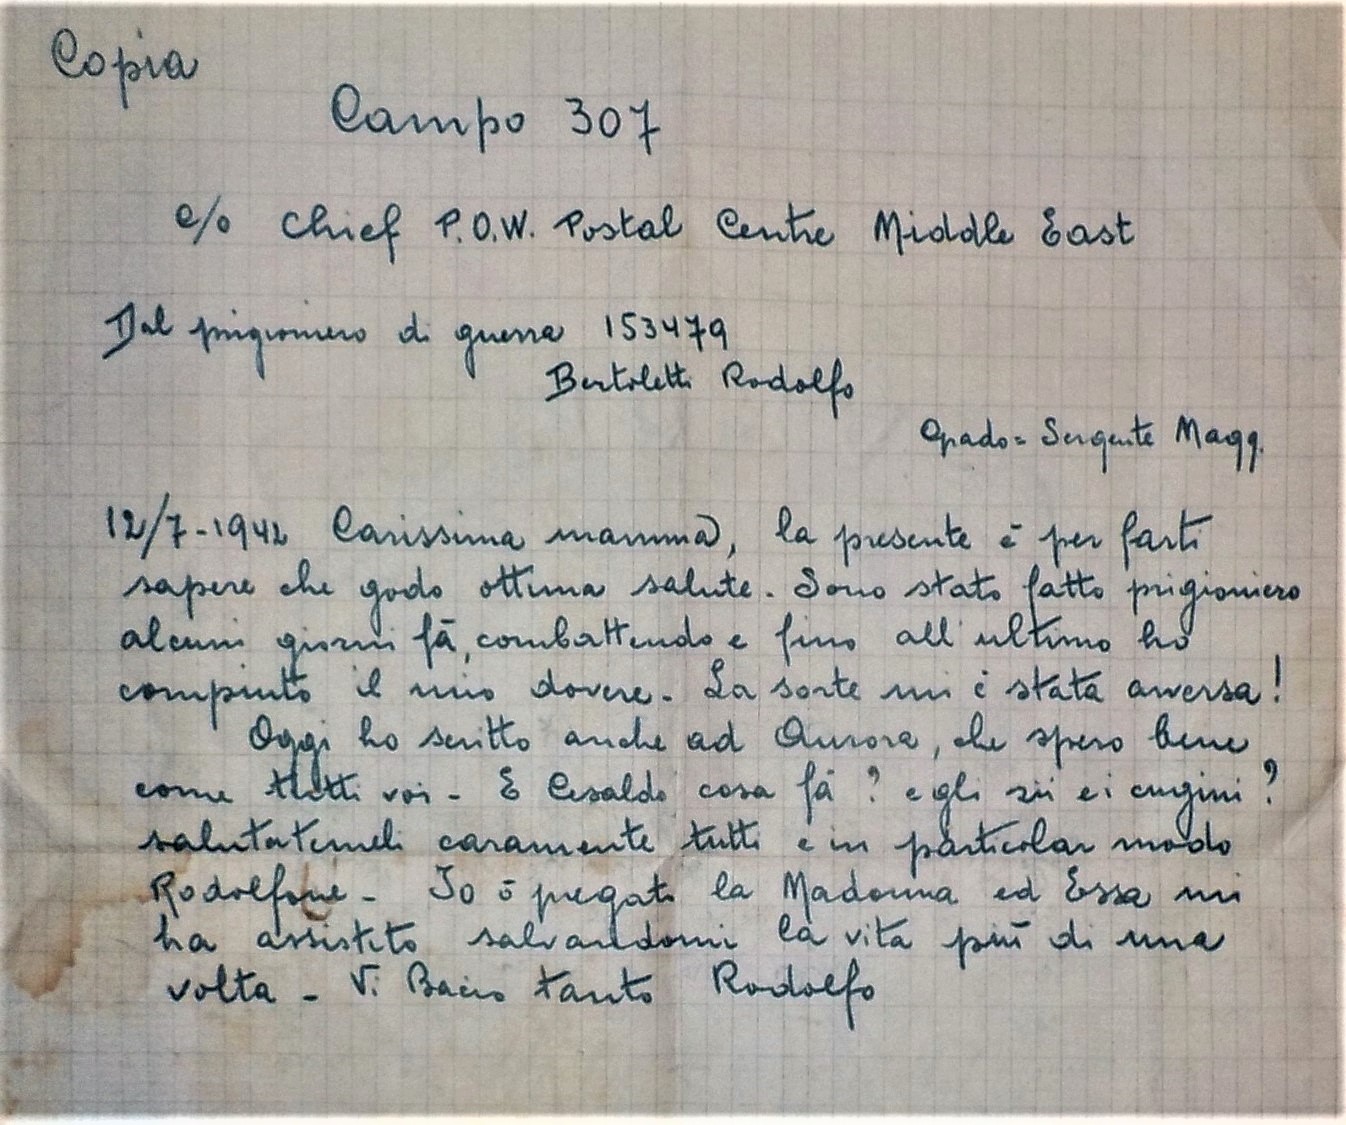 Copia
Campo 307
c/o Chief P.O.W. Postal Centre Middle East
Dal prigioniero di guerra 153479
Bertoletti Rodolfo
Grado = Sergente Magg.
12/7-1942 Carissima mamma, la presente è per farti
sapere che godo ottima salute. Sono stato fatto prigioniero
alcuni giorni fà, combattendo e fino all'ultimo ho
compiuto il mio dovere - La sorte mi è stata avversa!
Oggi ho scritto anche ad Aurora, che spero bene
come tutti voi - E Cesaldo cosa fà? e gli zii e i cugini?
salutatemeli caramente tutti e in particolar modo
Rodolfone - Io ò pregato la Madonna ed Essa mi
ha assistito salvandomi la vita più di una
volta - Vi Bacio tanto Rodolfo